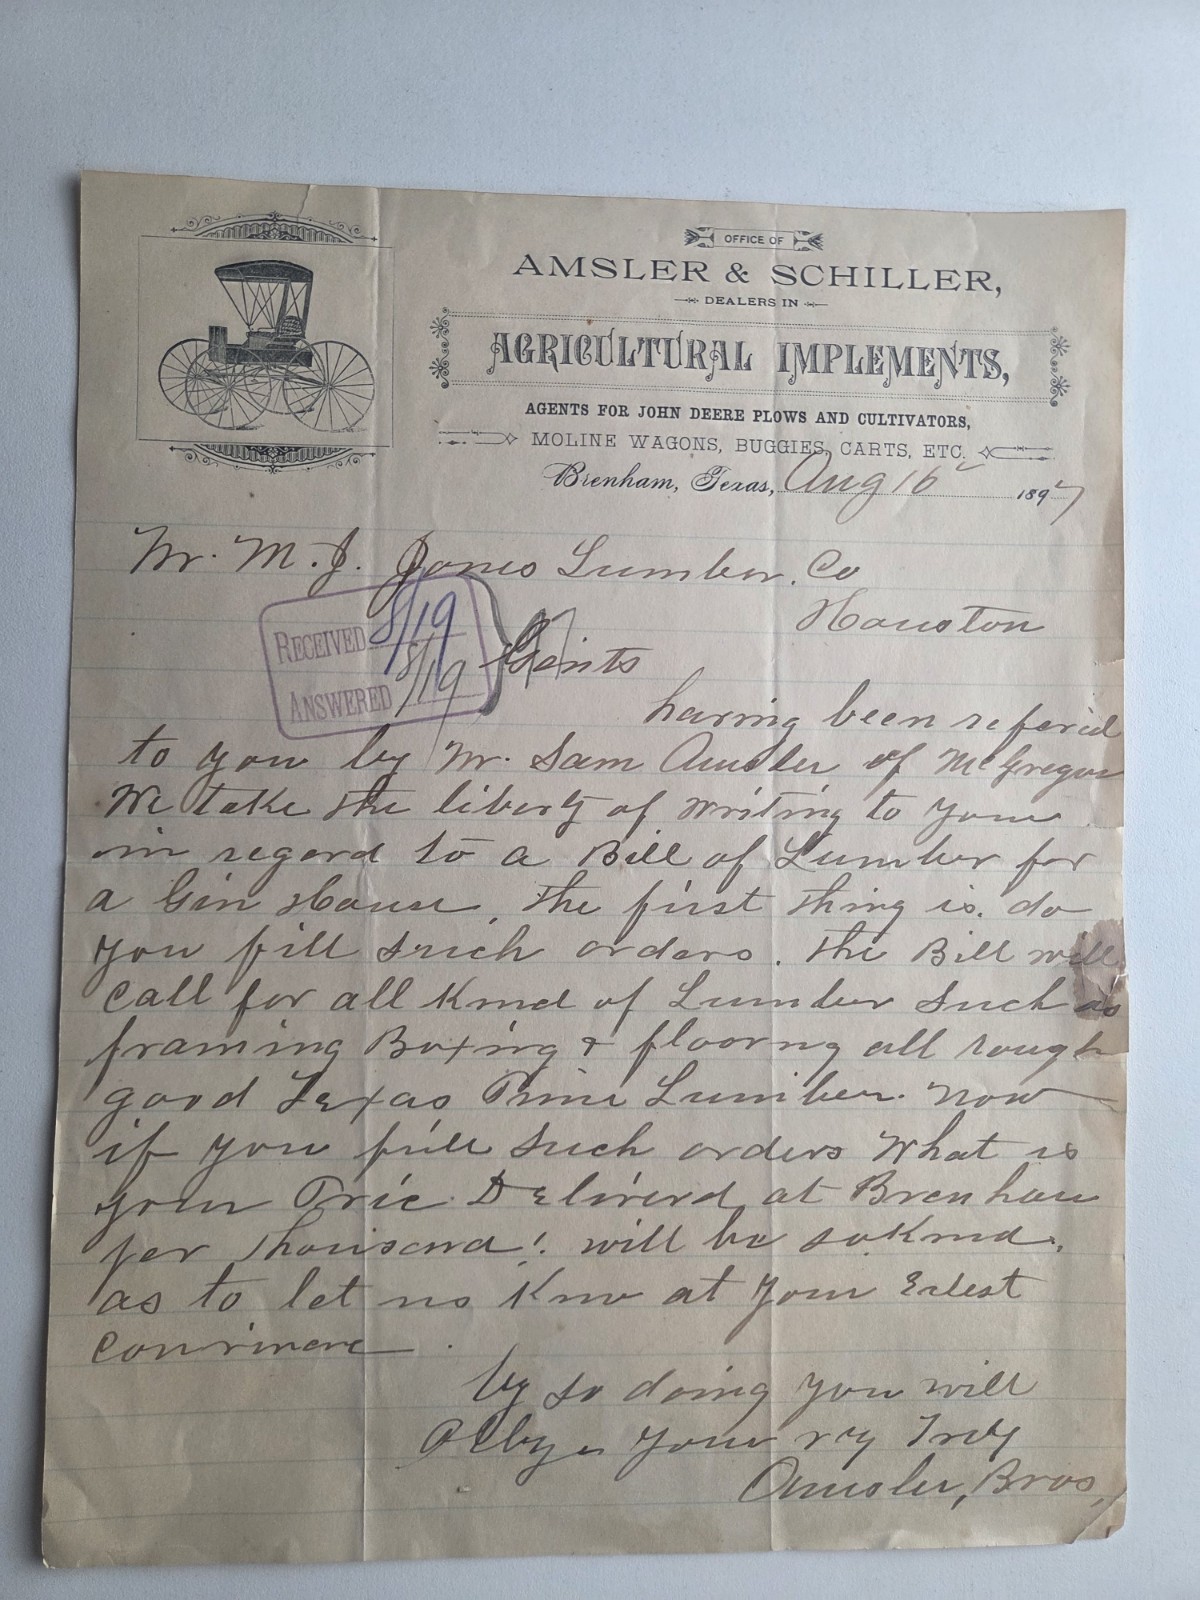 OFFICE OF
AMSLER & SCHILLER,
DEALERS IN
AGRICULTURAL IMPLEMENTS,
AGENTS FOR JOHN DEERE PLOWS AND CULTIVATORS,
MOLINE WAGONS, BUGGIES, CARTS, ETC.
Brenham, Texas, Aug 16 1897
Mr. M. J. Jones Lumber. Co
Houston
RECEIVED 8/19
ANSWERED 8/19
Gents
having been refered
to you by Mr. Sam Amsler of McGregor
We take the liberty of writing to you
in regard to a Bill of Lumber for
a Gin House. The first thing is. do
you fill such orders. The Bill will
call for all Kind of Lumber such as
framing Boxing & flooring all rough
good Texas Pine Lumber. Now
if you fill such orders What is
your Price Deliverd at Brenham
per Thousand! will be so Kind.
as to let us Know at your Erlest
by so doing you will
your vy Truly
Amsler, Bros,